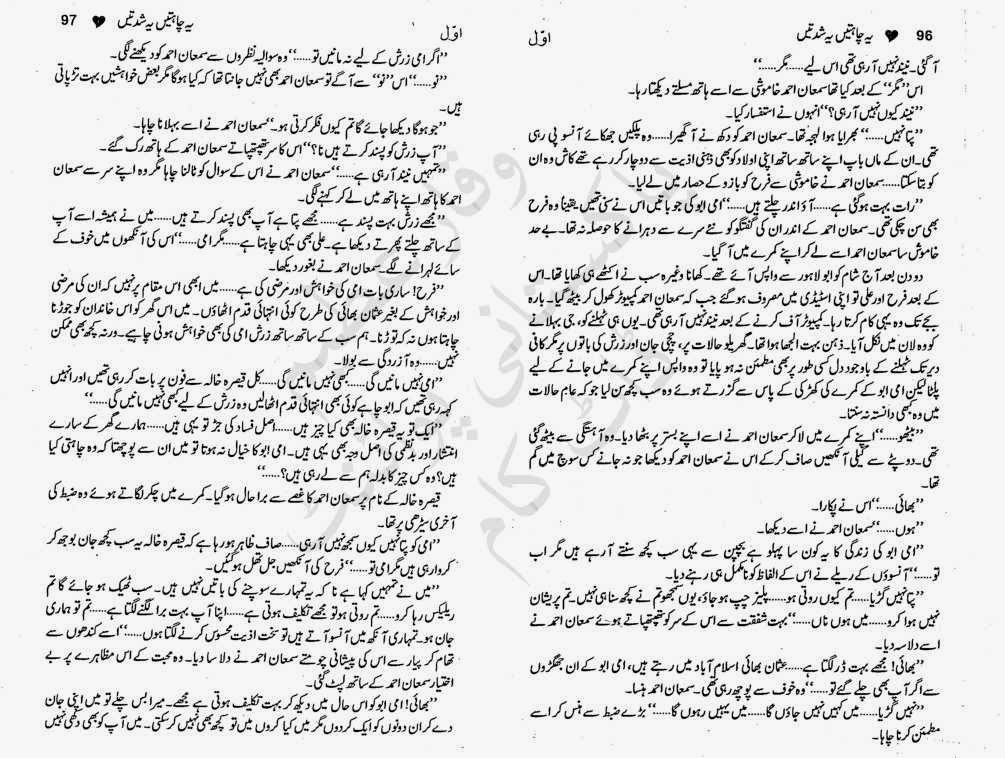 96 ♥ یہ چاہتیں یہ شدتیں
اوّل
آ گئی۔ نیند نہیں آ رہی تھی اس لیے......مگر......‘‘
اس ’’مگر‘‘ کے بعد کیا تھا سمعان احمد خاموشی سے اسے ہاتھ مسلتے دیکھتا رہا۔
’’نیند کیوں نہیں آ رہی؟‘‘ انہوں نے استفسار کیا۔
’’پتا نہیں......‘‘ بھرایا ہوا لہجہ تھا۔ سمعان احمد کو دکھ نے آ گھیرا......وہ پلکیں جھکائے آنسو پی رہی
تھی۔ ان کے ماں باپ اپنے ساتھ ساتھ اپنی اولاد کو بھی ذہنی اذیت سے دوچار کر رہے تھے کاش وہ ان
کو بتا سکتا......سمعان احمد نے خاموشی سے فرح کو بازو کے حصار میں لے لیا۔
’’رات بہت ہو گئی ہے......آؤ اندر چلتے ہیں......‘‘ امی ابو کی جو باتیں اس نے سنی تھیں یقیناً وہ فرح
بھی سن چکی تھی۔ سمعان احمد کے اندر ان کی گفتگو کو نئے سرے سے دہرانے کا حوصلہ نہ تھا۔ بے حد
خاموش سا سمعان احمد اسے لے کر اپنے کمرے میں آ گیا۔
دو دن بعد آج شام کو ابو لاہور سے واپس آئے تھے۔ کھانا وغیرہ سب نے اکٹھے ہی کھایا تھا۔ اس
کے بعد فرح اور علی تو اپنی اسٹیڈی میں مصروف ہو گئے جب کہ سمعان احمد کمپیوٹر کھول کر بیٹھ گیا۔ بارہ
بجے تک وہ یہی کام کرتا رہا۔ کمپیوٹر آف کرنے کے بعد نیند نہیں آ رہی تھی۔ یوں ہی ٹہلنے کو، جی بہلانے
کو وہ لان میں نکل آیا۔ ذہن بہت الجھا ہوا تھا۔ گھریلو حالات پر، چچی جان اور زرش کی باتوں پر مگر کافی
دیر تک ٹہلنے کے باوجود دل کسی طور پر بھی مطمئن نہ ہو پایا تو وہ واپس اپنے کمرے میں جانے کے لیے
پلٹا لیکن امی ابو کے کمرے کی کھڑکی کے پاس سے گزرتے ہوئے وہ سب کچھ سن لیا جو کہ عام حالات
میں وہ کبھی دانستہ نہ سنتا۔
’’بیٹھو......‘‘ اپنے کمرے میں لا کر سمعان احمد نے اسے اپنے بستر پر بٹھا دیا۔ وہ آہستگی سے بیٹھ گئی
تھی۔ دوپٹے سے گیلی آنکھیں صاف کر کے اس نے سمعان احمد کو دیکھا جو نہ جانے کس سوچ میں گم
تھا۔
’’بھائی......‘‘ اس نے پکارا۔
’’ہوں......‘‘ سمعان احمد نے اسے دیکھا۔
’’امی ابو کی زندگی کا یہ کون سا پہلو ہے بچپن سے یہی سب کچھ سنتے آ رہے ہیں مگر اب
تو......‘‘ آنسوؤں کے ریلے نے اس کے الفاظ کو نامکمل ہی رہنے دیا۔
’’پتا نہیں گڑیا......تم کیوں روتی ہو......پلیز چپ ہو جاؤ، یوں سمجھو تم نے کچھ سنا ہی نہیں۔ تم پریشان
نہیں ہوا کرو......میں ہوں ناں......‘‘ بہت شفقت سے اس کے سر کو تھپتھپاتے ہوئے سمعان احمد نے
اسے دلاسہ دیا۔
’’بھائی! مجھے بہت ڈر لگتا ہے......عثمان بھائی اسلام آباد میں رہتے ہیں، امی ابو کے ان جھگڑوں
سے اگر آپ بھی چلے گئے تو......‘‘ وہ خوف سے پوچھ رہی تھی۔ سمعان احمد ہنسا۔
’’نہیں گڑیا......میں کہیں نہیں جاؤں گا......میں یہیں رہوں گا......‘‘ بڑے ضبط سے ہنس کر اسے
مطمئن کرنا چاہا۔
97 ♥ یہ چاہتیں یہ شدتیں
اوّل
’’اگر امی زرش کے لیے نہ مانیں تو......‘‘ وہ سوالیہ نظروں سے سمعان احمد کو دیکھنے لگی۔
’’تو......‘‘ اس ’’تو‘‘ سے آگے تو سمعان احمد بھی نہیں جانتا تھا کہ کیا ہو گا مگر بعض خواہشیں بہت تڑپاتی
ہیں۔
’’جو ہو گا دیکھا جائے گا تم کیوں فکر کرتی ہو۔‘‘ سمعان احمد نے اسے بہلانا چاہا۔
’’آپ زرش کو پسند کرتے ہیں نا؟‘‘ اس کا سر تھپتھپاتے سمعان احمد کے ہاتھ رک گئے۔
’’تمہیں نیند آ رہی ہے......‘‘ سمعان احمد نے اس کے سوال کو ٹالنا چاہا مگر وہ اپنے سر سے سمعان
احمد کا ہاتھ اپنے ہاتھ میں لے کر کہنے لگی۔
’’مجھے زرش بہت پسند ہے......مجھے پتا ہے آپ بھی پسند کرتے ہیں......میں نے ہمیشہ اسے آپ
کے ساتھ چلتے پھرتے دیکھا ہے۔ علی بھی یہی چاہتا ہے......مگر امی......‘‘ اس کی آنکھوں میں خوف کے
سائے لہرانے لگے۔ سمعان احمد نے بغور دیکھا۔
’’فرح! ساری بات امی کی خواہش اور مرضی کی ہے......میں ابھی اس مقام پر نہیں کہ ان کی مرضی
اور خواہش کے بغیر عثمان بھائی کی طرح کوئی انتہائی قدم اٹھاؤں۔ میں اس گھر کو اس خاندان کو جوڑنا
چاہتا ہوں نہ کہ توڑنا۔ ہم سب کے ساتھ ساتھ زرش امی کی بھی خواہش ہونی چاہیے۔ ورنہ کچھ بھی ممکن
نہیں......‘‘ وہ آزردگی سے بولا۔
’’امی نہیں مانیں گی......کبھی نہیں مانیں گی......کل قیصرہ خالہ سے فون پر بات کر رہی تھیں اور انہیں
کہہ رہی تھیں کہ ابو چاہے کوئی بھی انتہائی قدم اٹھا لیں وہ زرش کے لیے کبھی نہیں مانیں گی......‘‘
’’ایک تو یہ قیصرہ خالہ بھی کیا چیز ہیں......اصل فساد کی جڑ تو یہی ہیں......ہمارے گھر کے سارے
انتشار اور بدنظمی کی اصل وجہ بھی یہی ہیں۔ امی ابو کا خیال نہ ہوتا تو میں ان سے پوچھتا کہ وہ چاہتی کیا
ہیں؟ وہ کس چیز کا بدلہ ہم سے لے رہی ہیں؟......‘‘
قیصرہ خالہ کے نام پر سمعان احمد کا غصے سے برا حال ہو گیا۔ کمرے میں چکر لگاتے ہوئے وہ ضبط کی
آخری سیڑھی پر تھا۔
’’امی کو پتا نہیں کیوں سمجھ نہیں آ رہی......صاف ظاہر ہو رہا ہے کہ قیصرہ خالہ یہ سب کچھ جان بوجھ کر
کروا رہی ہیں مگر امی تو......‘‘ فرح کی آنکھیں جل تھل ہو گئیں۔
’’میں نے تمہیں کہا ہے نا کہ یہ تمہارے سوچنے کی باتیں نہیں ہیں۔ سب ٹھیک ہو جائے گا تم
ریلیکس رہا کرو......تم روتی ہو تو مجھے تکلیف ہوتی ہے......اپنا آپ بہت برا لگنے لگتا ہے......تم تو ہماری
جان ہو۔ تمہاری آنکھ میں آنسو آتے ہیں تو سخت اذیت محسوس کرنے لگتا ہوں......‘‘ اسے کندھوں سے
تھام کر پیار سے اس کی پیشانی چومتے سمعان احمد نے دلاسا دیا۔ وہ محبت کے اس مظاہرے پر بے
اختیار سمعان احمد کے ساتھ لپٹ گئی۔
’’بھائی! امی ابو کو اس حال میں دیکھ کر بہت تکلیف ہوتی ہے مجھے۔ میرا بس چلے تو میں اپنی جان
دے کر ان دونوں کو ایک کر دوں مگر میں کیا کروں میں تو کچھ بھی نہیں کر سکتی۔ میں آپ کو بھی دکھی نہیں